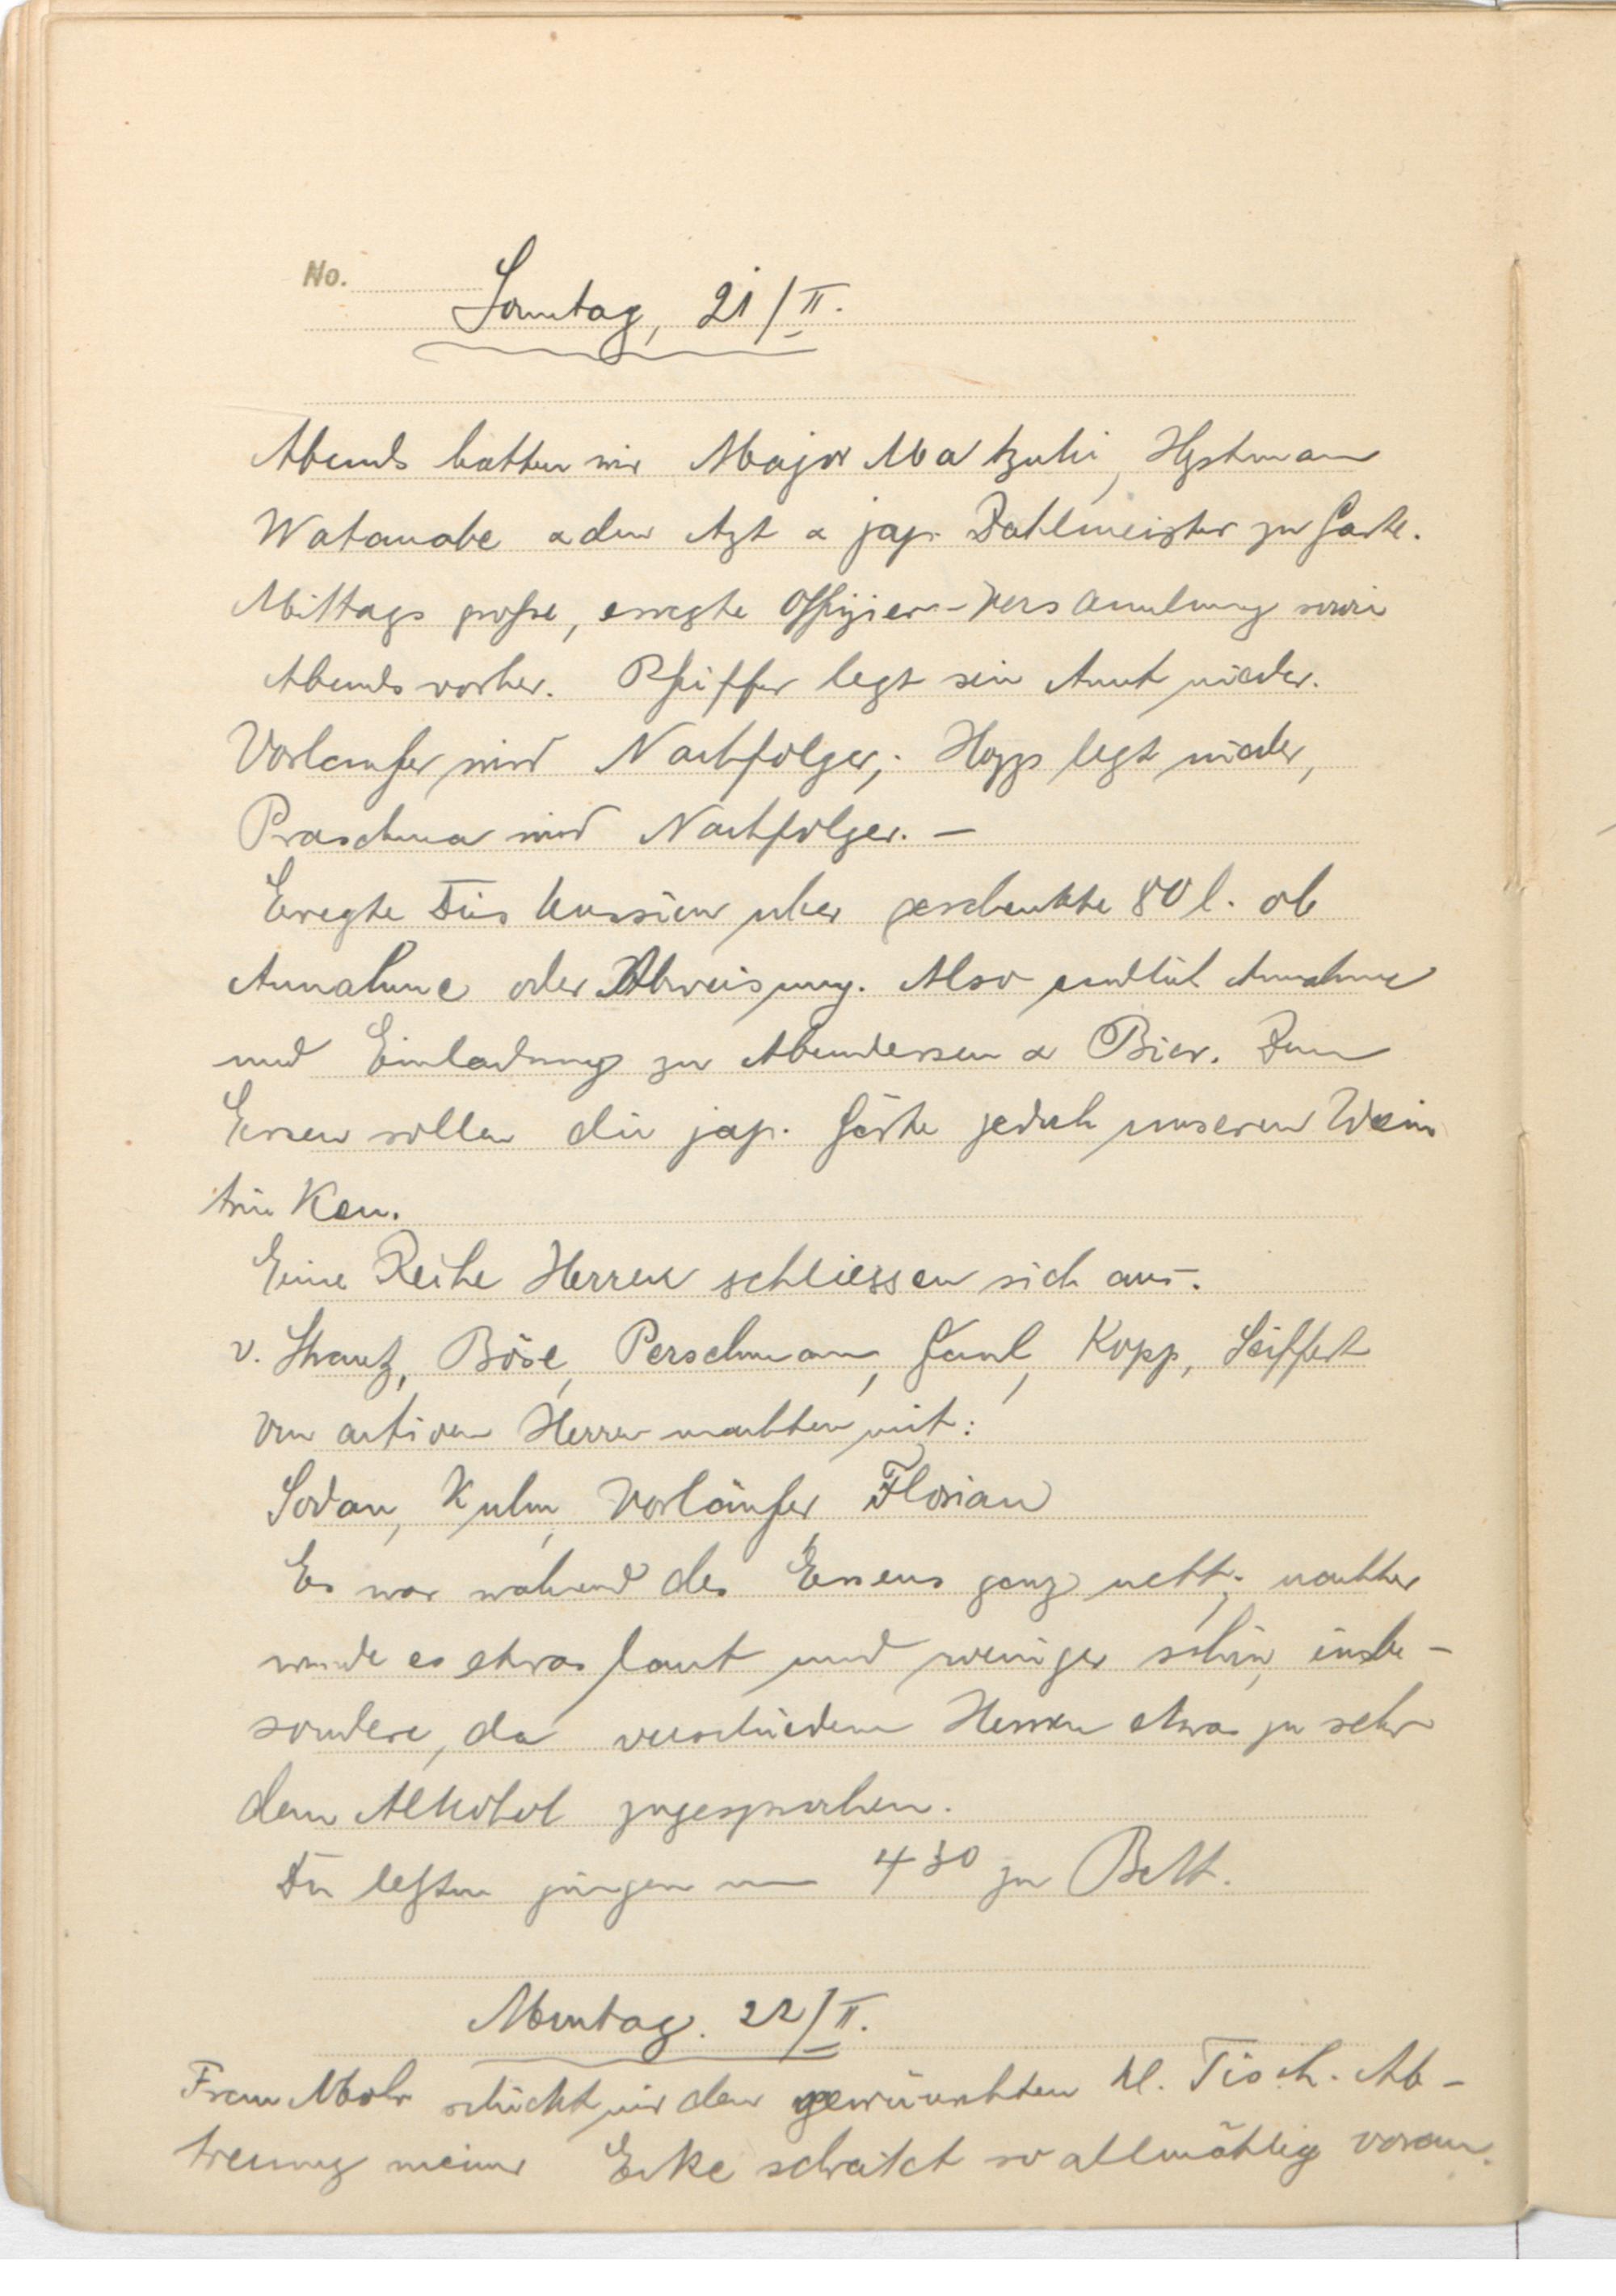 No.
Sonntag, 21/II.
Abends hatten wir Major Matzuki, Hptmann
Watanabe & den Arzt & jap. Zahlmeister zu Gaste.
Mittags große, erregte Offizier-Versammlung sowie
Abends vorher. Pfeiffer legt sein Amt nieder.
Vorlaufer wird Nachfolger; Hopp legt nieder,
Praschma wird Nachfolger. —
Erregte Diskussion über geschenkte 80 l. ob
Annahme oder Abweisung. Also endlich Annahme
und Einladung zu Abendessen & Bier. Zum
Essen sollen die jap. Gäste jedoch unseren Wein
trinken.
Eine Reihe Herren schliessen sich aus.
v. Strantz, Böse, Perschmann, Gaul, Kopp, Seiffert
Von activen Herren machten mit:
Sodan, Kulm, Vorläufer, Florian
Es war während des Essens ganz nett; nachher
wurde es etwas laut und weniger schön, insbe-
sondere, da verschiedene Herren etwas zu sehr
dem Alkohol zugesprochen.
Die letzten gingen um 4 30 zu Bett.
Montag. 22/II.
Frau Mohr schickt mir den gewünschten kl. Tisch. Ab-
trennung meiner Ecke schreitet so allmählig voran.